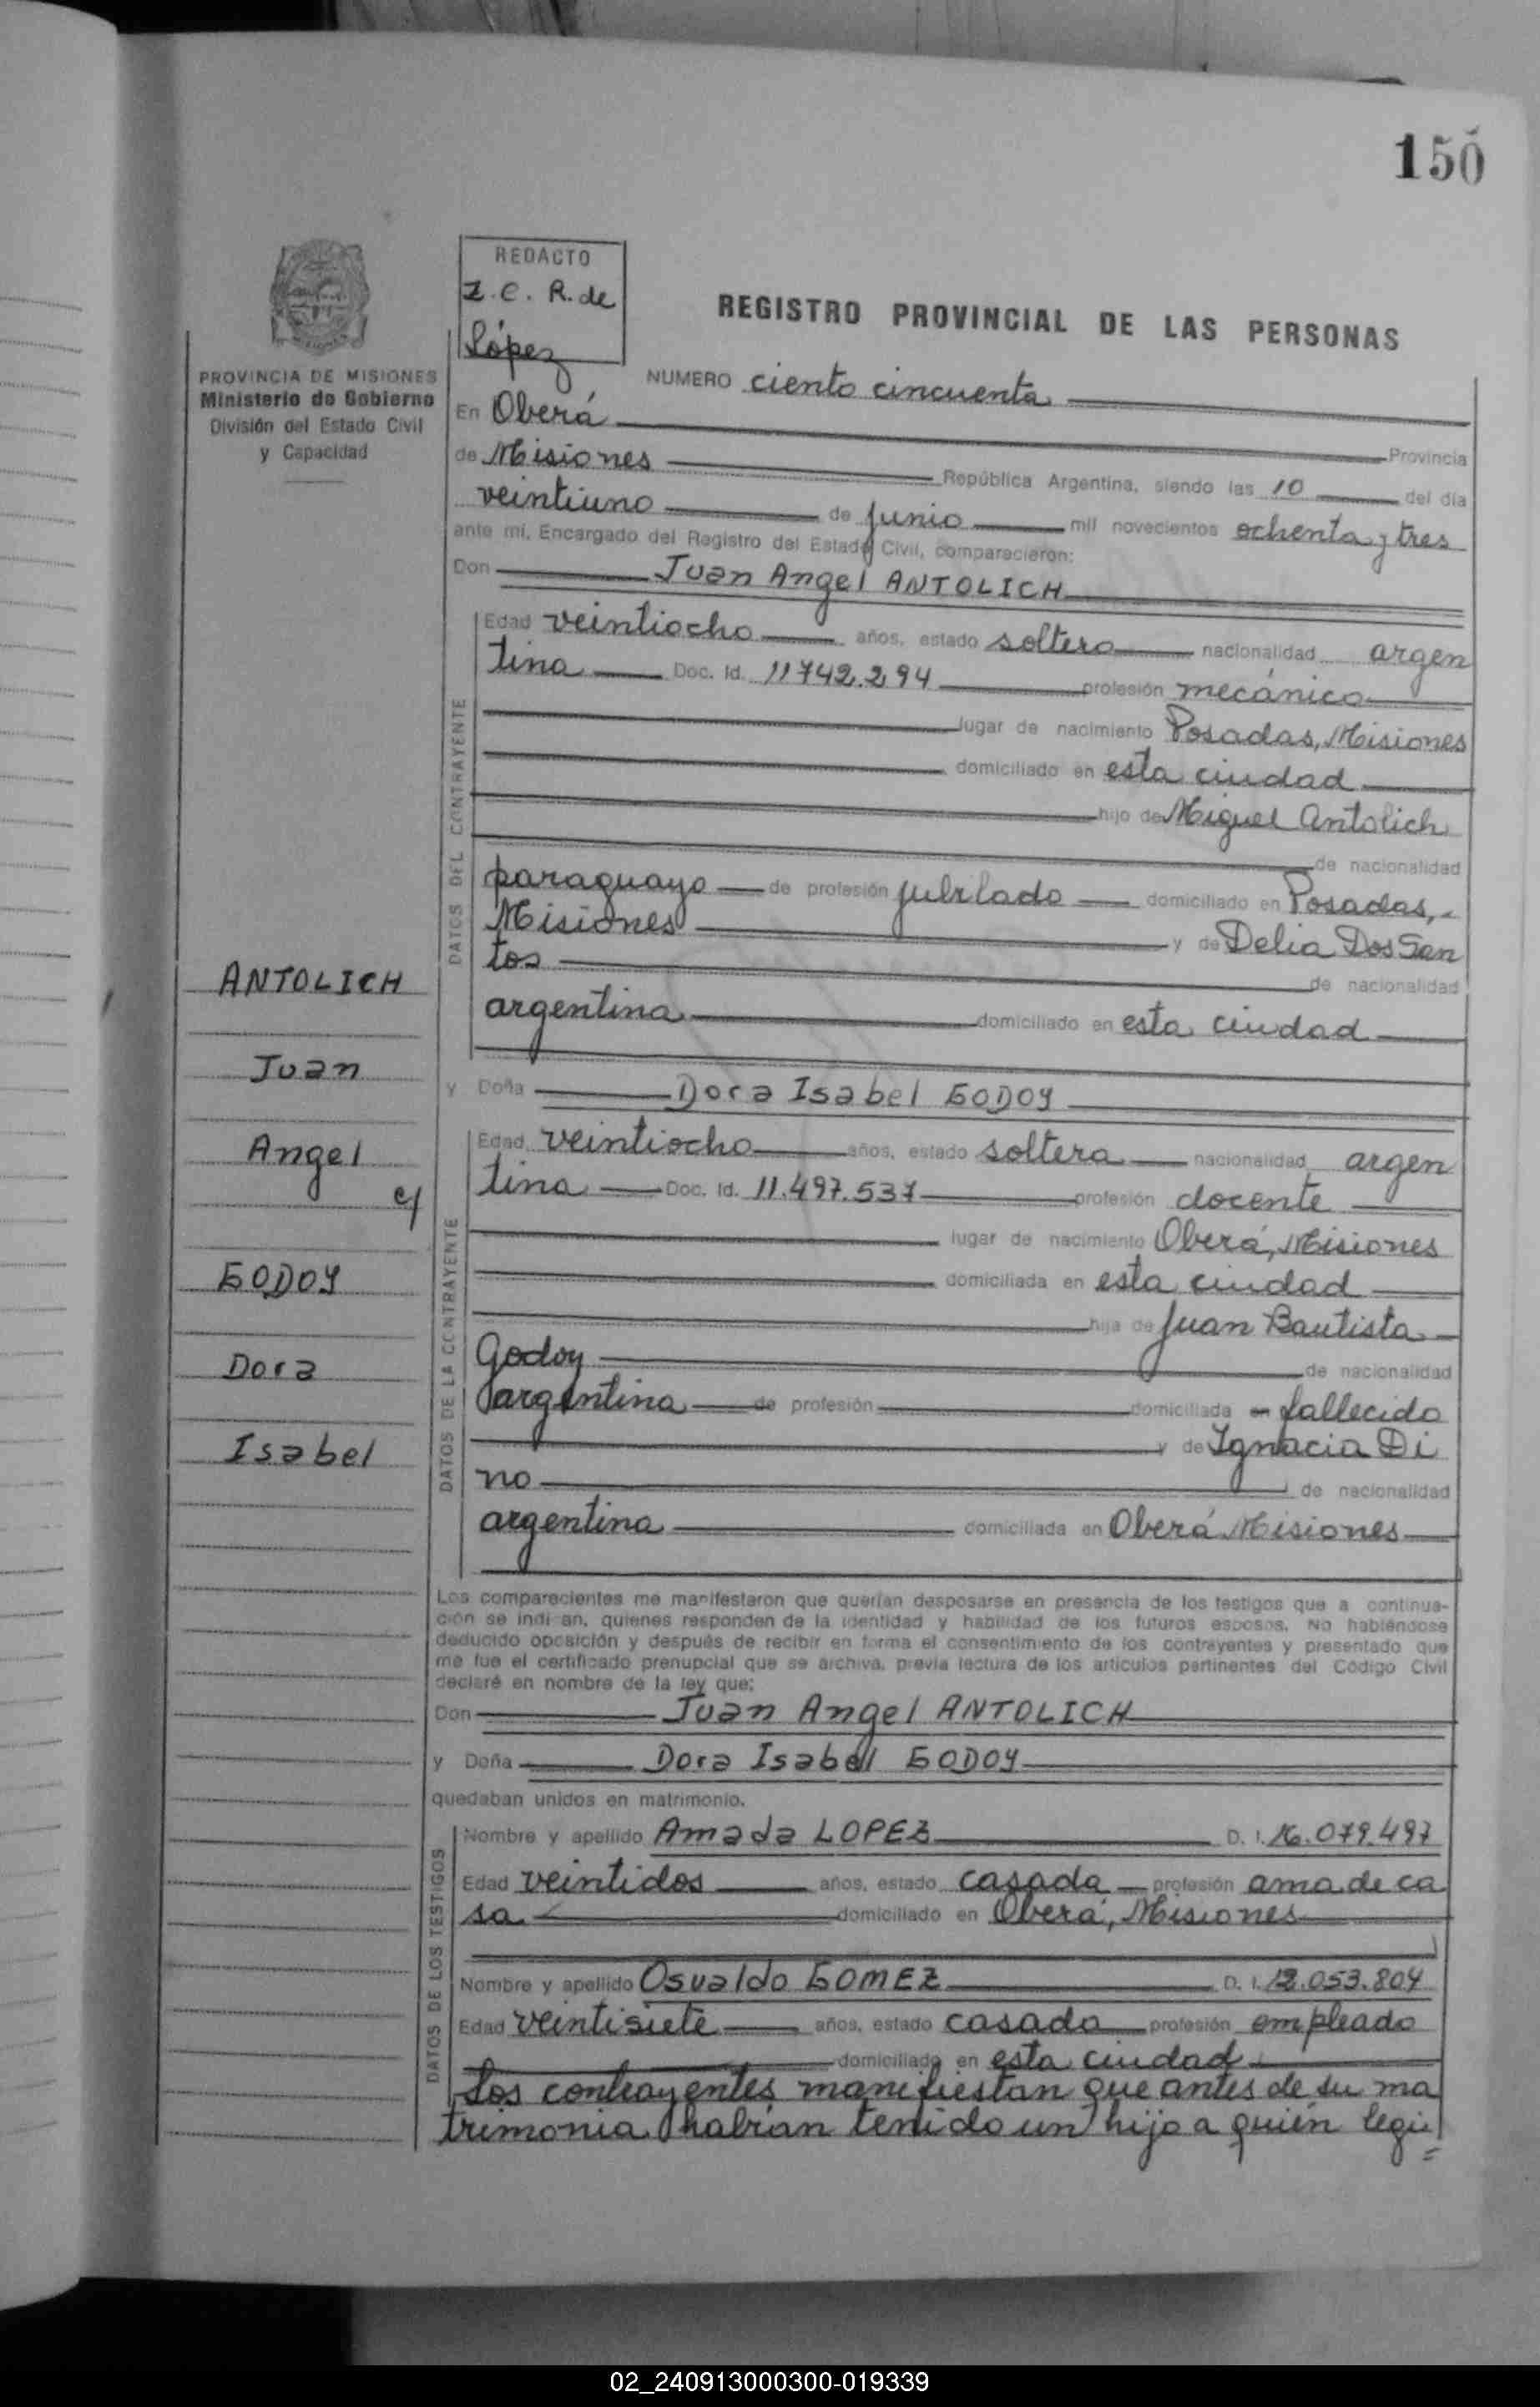 150
REDACTO
Z. C. R. de
López
REGISTRO PROVINCIAL DE LAS PERSONAS
PROVINCIA DE MISIONES
Ministerio de Gobierno
División del Estado Civil
y Capacidad
NUMERO ciento cincuenta
En Oberá Provincia
de Misiones República Argentina, siendo las 10 del día
veintiuno de junio mil novecientos ochenta y tres
ante mí, Encargado del Registro del Estado Civil, comparecieron:
Don Juan Angel ANTOLICH
DATOS DEL CONTRAYENTE
Edad veintiocho años, estado soltero nacionalidad argen
tina Doc. Id. 11742.294 profesión mecánico
lugar de nacimiento Posadas, Misiones
domiciliado en esta ciudad
hijo de Miguel Antolich
de nacionalidad
paraguayo de profesión jubilado domiciliado en Posadas,
Misiones y de Delia Dos San
tos de nacionalidad
argentina domiciliado en esta ciudad
y Doña Dora Isabel GODOY
DATOS DE LA CONTRAYENTE
Edad veintiocho años, estado soltera nacionalidad argen
tina Doc. Id. 11.497.537 profesión docente
lugar de nacimiento Oberá, Misiones
domiciliada en esta ciudad
hija de Juan Bautista
Godoy de nacionalidad
argentina de profesión domiciliada en fallecido
y de Ignacia Di
no de nacionalidad
argentina domiciliada en Oberá Misiones
ANTOLICH
Juan
Angel
c/
GODOY
Dora
Isabel
Los comparecientes me manifestaron que querían desposarse en presencia de los testigos que a continua-
ción se indi an, quienes responden de la identidad y habilidad de los futuros esposos. No habiéndose
deducido oposición y después de recibir en forma el consentimiento de los contrayentes y presentado que
me fue el certificado prenupcial que se archiva, previa lectura de los artículos pertinentes del Código Civil
declaré en nombre de la ley que:
Don Juan Angel ANTOLICH
y Doña Dora Isabel GODOY
quedaban unidos en matrimonio.
DATOS DE LOS TESTIGOS
Nombre y apellido Amada LOPEZ D. I. 16.079.497
Edad veintidos años, estado casada profesión ama de ca
sa domiciliado en Oberá, Misiones
Nombre y apellido Osvaldo GOMEZ D. I. 12.053.804
Edad veintisiete años, estado casado profesión empleado
domiciliado en esta ciudad
Los contrayentes manifiestan que antes de su ma
trimonio habían tenido un hijo a quién legi
=
02_240913000300-019339